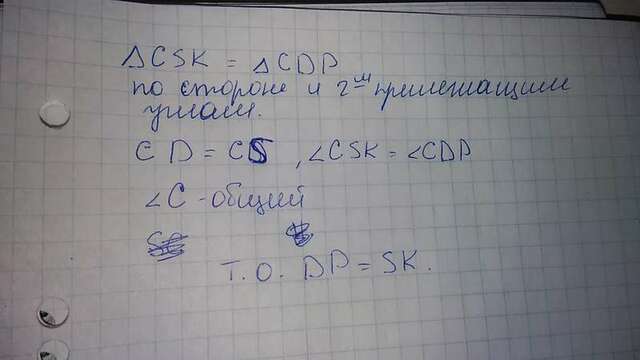 ΔCSK = ΔCDP
по стороне и 2ᵐ прилежащим
углам.
CD = CS, ∠CSK = ∠CDP
∠C - общий
Т.О. DP = SK.